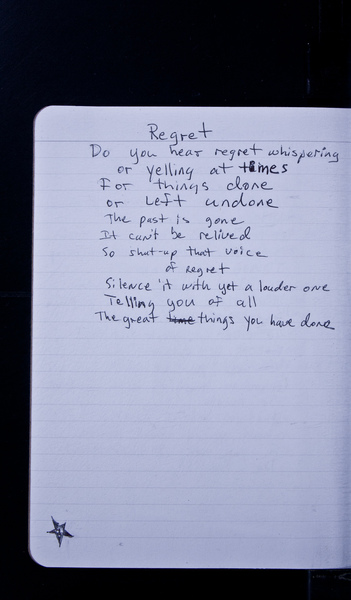 Regret
Do you hear regret whispering
or yelling at times
For things done
or Left undone
The past is gone
It can't be relived
So shut-up that voice
of regret
Silence it with yet a louder one
Telling you of all
The great time things you have done